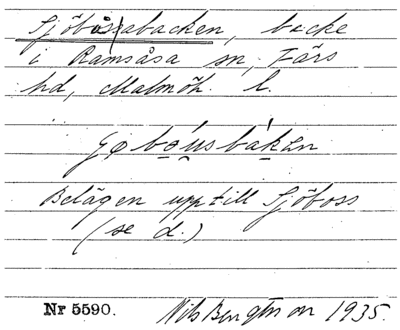 Sjöbåssabacken, backe
i Ramsåsa sn, Färs
hd, Malmöh. l.
Belägen upp till Sjöboss
(se d.)
Nr 5590.
Nils Bengtsson 1935.